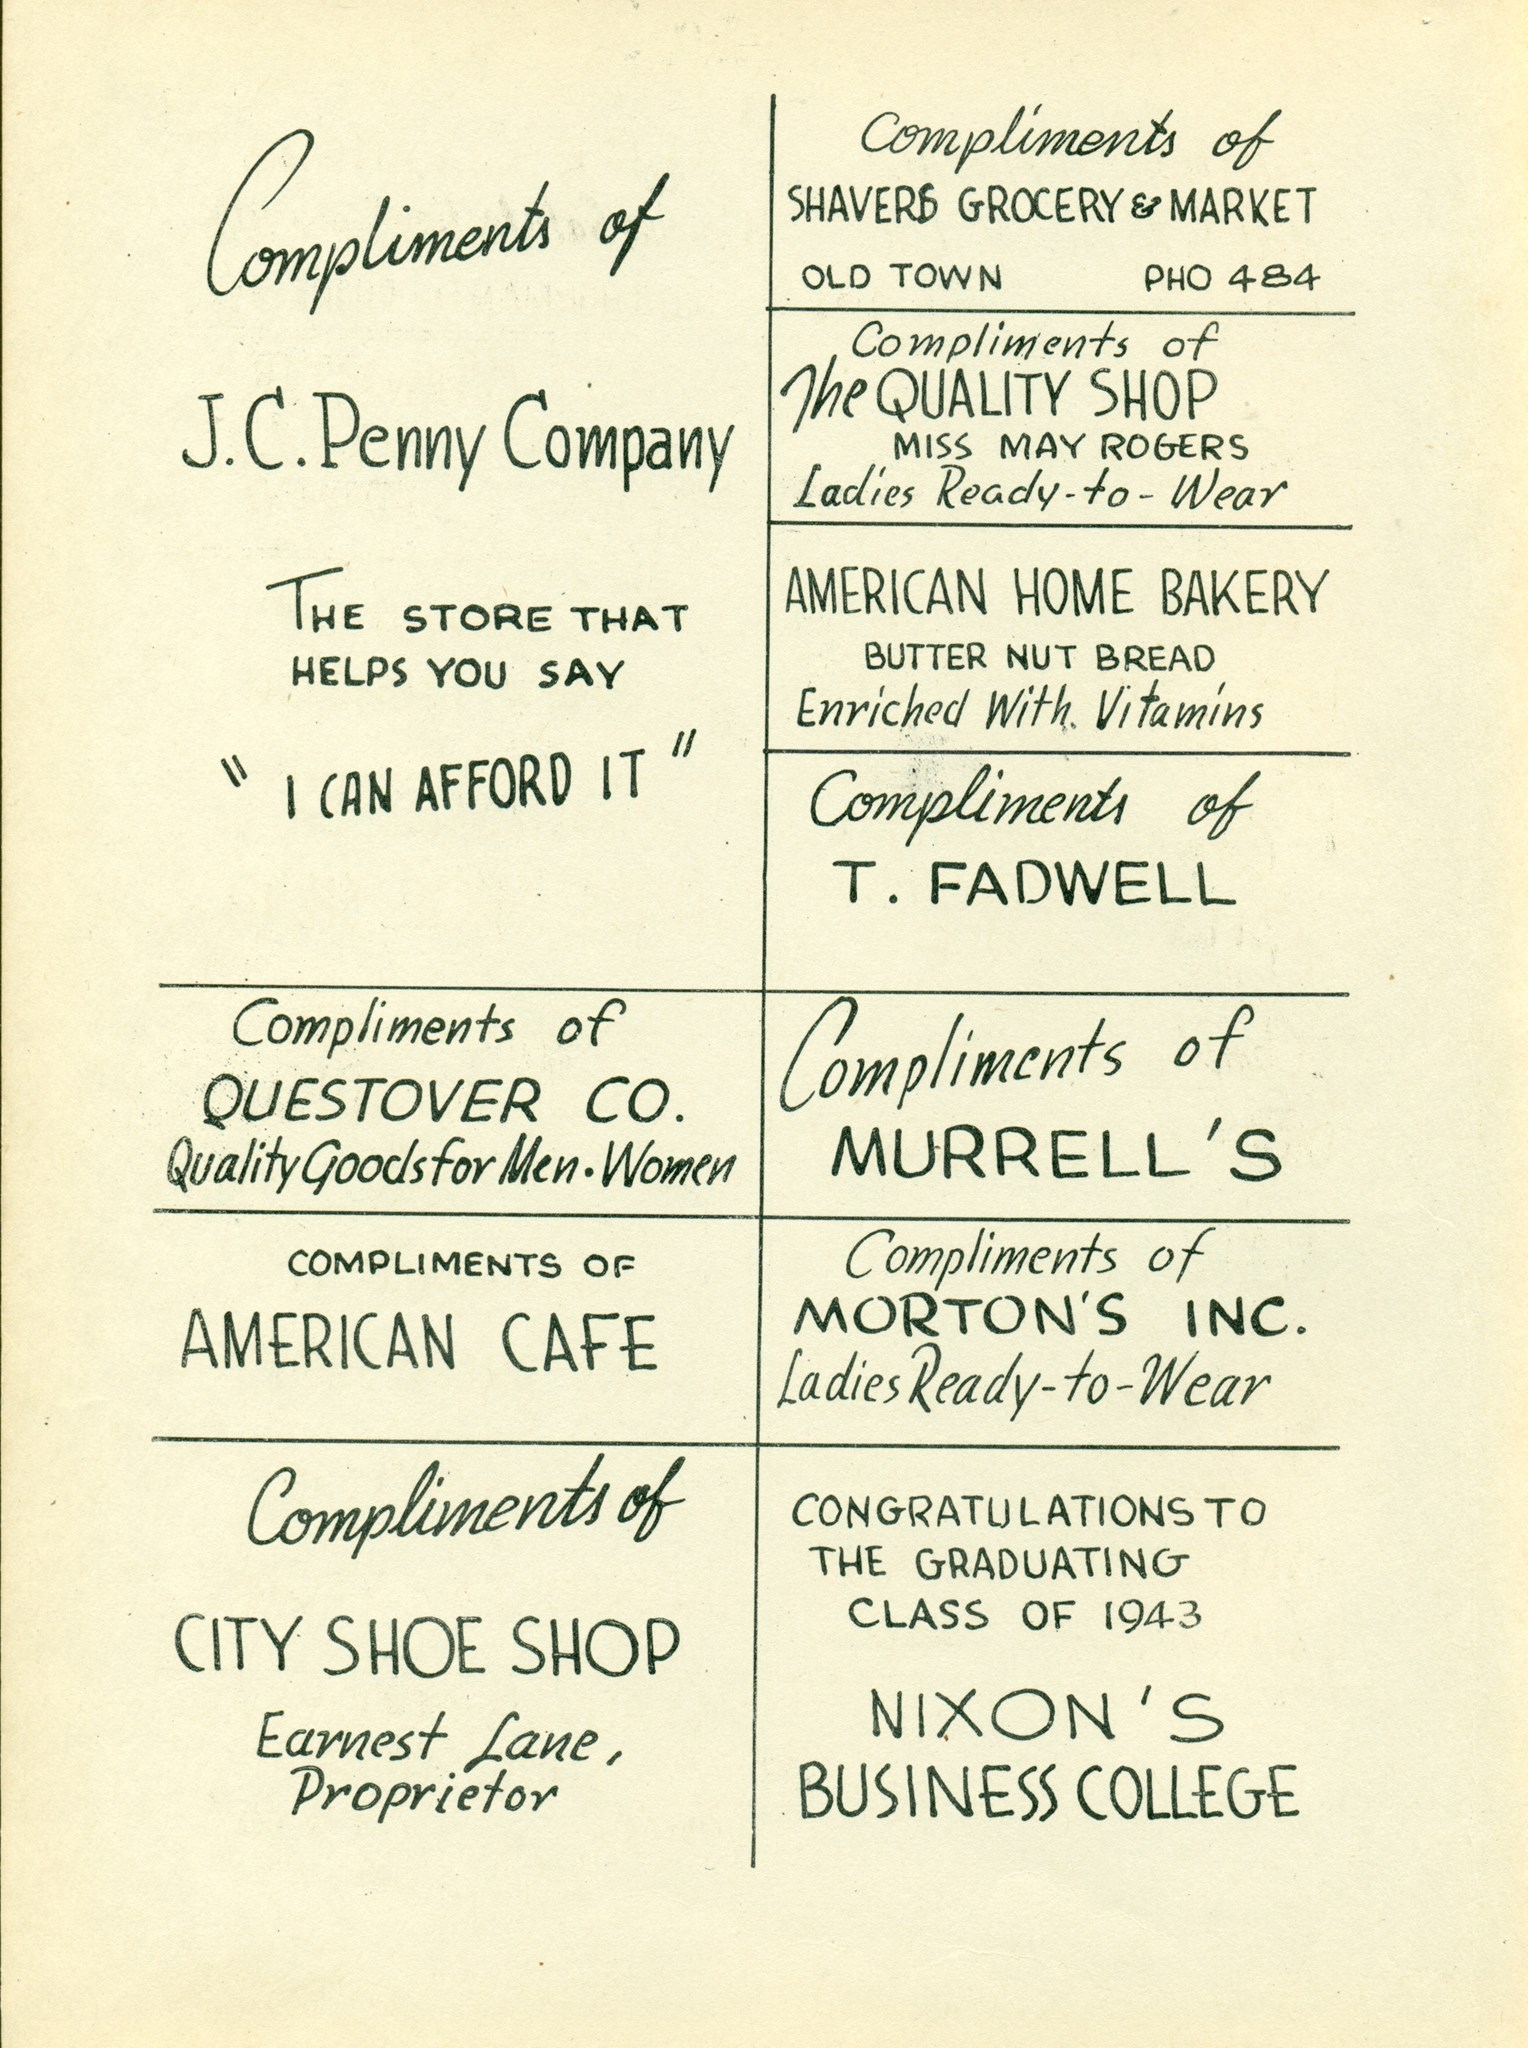 Compliments of
J.C. Penny Company
THE STORE THAT
HELPS YOU SAY
"I CAN AFFORD IT"
Compliments of
QUESTOVER CO.
Quality Goods for Men. Women
COMPLIMENTS OF
AMERICAN CAFE
Compliments of
CITY SHOE SHOP
Earnest Lane,
Proprietor
Compliments of
SHAVERS GROCERY & MARKET
OLD TOWN PHO 484
Compliments of
The QUALITY SHOP
MISS MAY ROGERS
Ladies Ready-to-Wear
AMERICAN HOME BAKERY
BUTTER NUT BREAD
Enriched With. Vitamins
Compliments of
T. FADWELL
Compliments of
MURRELL'S
Compliments of
MORTON'S INC.
Ladies Ready-to-Wear
CONGRATULATIONS TO
THE GRADUATING
CLASS OF 1943
NIXON'S
BUSINESS COLLEGE